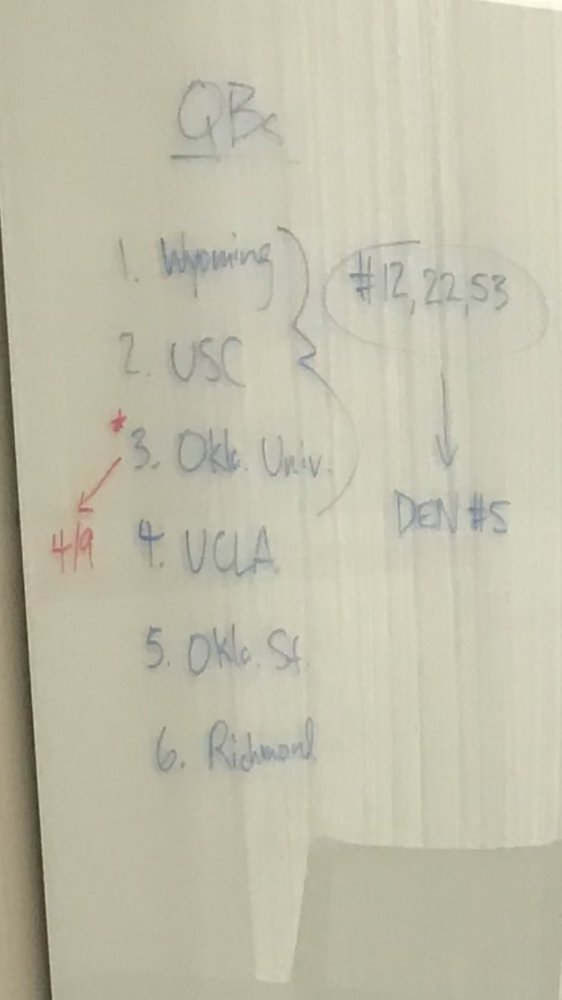 QBs
1. Wyoming
#12, 22, 53
2. USC
* 3. Okla. Univ.
DEN #5
4/9
4. UCLA
5. Okla. St.
6. Richmond